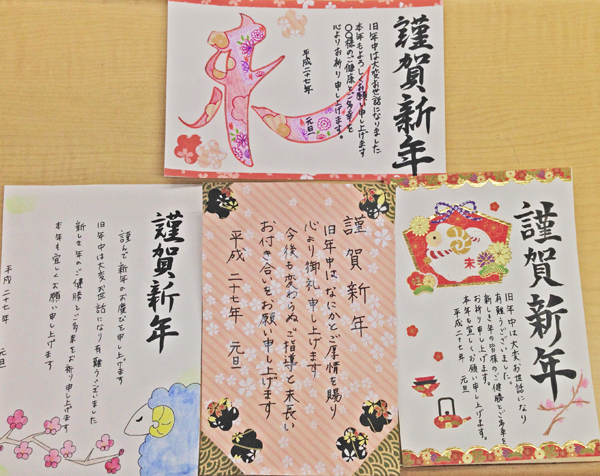 謹賀新年
旧年中は大変お世話になりました
本年もよろしくお願い申し上げます
〇〇様のご健康とご多幸を
心よりお祈り申し上げます。
平成二十七年
元旦
謹賀新年
旧年中は大変お世話になり
有難うございました。
新しき年の皆様のご健勝とご多幸を
お祈り申し上げます。
本年も宜しくお願い申し上げます。
平成二十七年 元旦
未
謹賀新年
旧年中はなにかとご厚情を賜り
心より御礼申し上げます
今後も変わらぬご指導と末長い
お付き合いをお願い申し上げます
平成 二十七年 元旦
謹賀新年
謹んで新年のお慶びを申し上げます
旧年中は大変お世話になり有難うございました
新しき年のご健勝とご多幸をお祈り申し上げます
本年も宜しくお願い申し上げます
平成二十七年 元旦